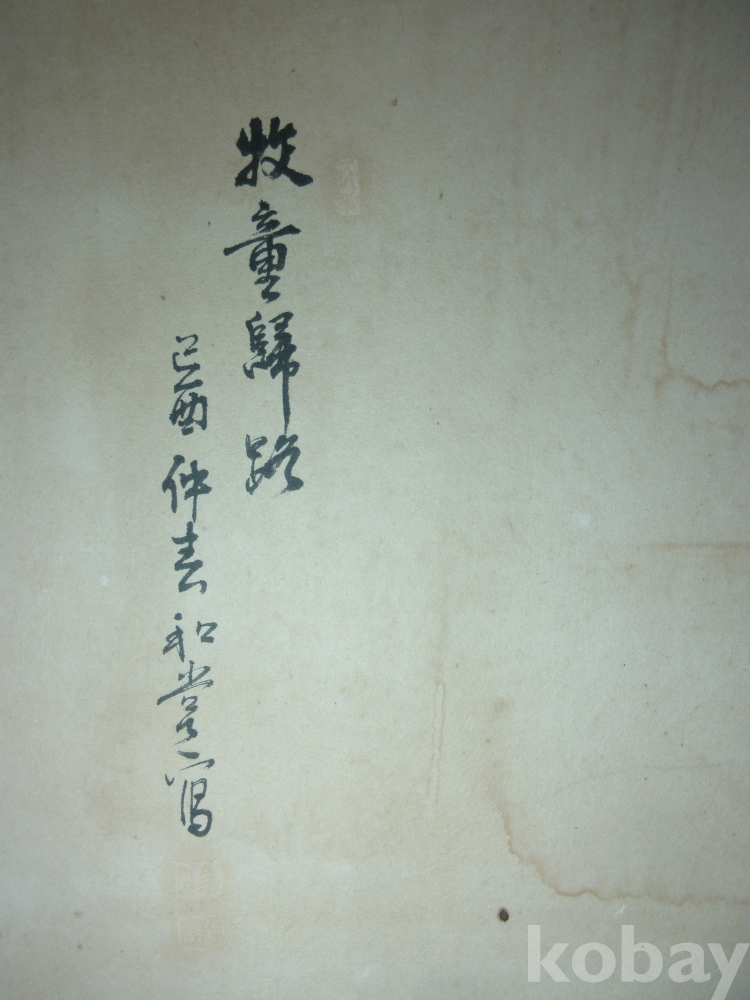 牧童歸路
己酉 仲春 和堂寫
kobay